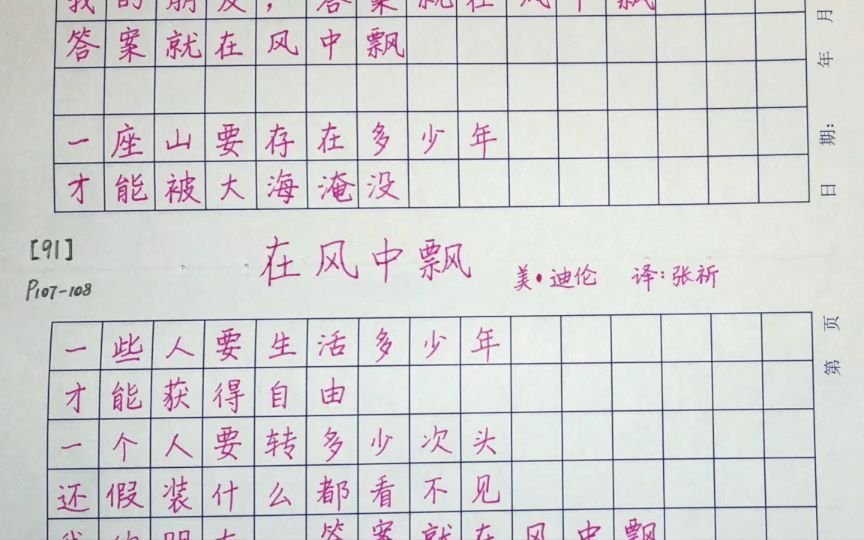 我的朋友，答案就在风中飘
答案就在风中飘
一座山要存在多少年
才能被大海淹没
年 月
日 期:
[91]
P107-108
在风中飘
美·迪伦 译:张祈
第 页
一些人要生活多少年
才能获得自由
一个人要转多少次头
还假装什么都看不见
我的朋友，答案就在风中飘